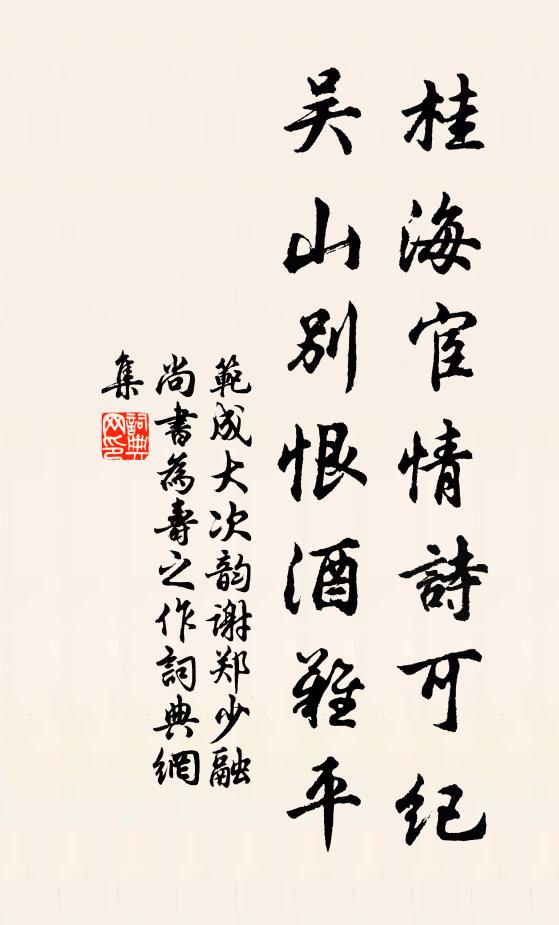 桂海宦情詩可纪
吴山别恨酒難平
範成大次韵谢郑少融
尚書為壽之作詞典網
集
詞典
网印